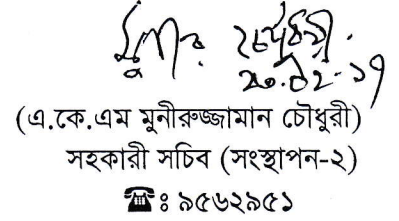 মুনীর চৌধুরী.
২০.০২.১৭
(এ.কে.এম মুনীরুজ্জামান চৌধুরী)
সহকারী সচিব (সংস্থাপন-২)
☎ঃ ৯৫৬২৯৫১